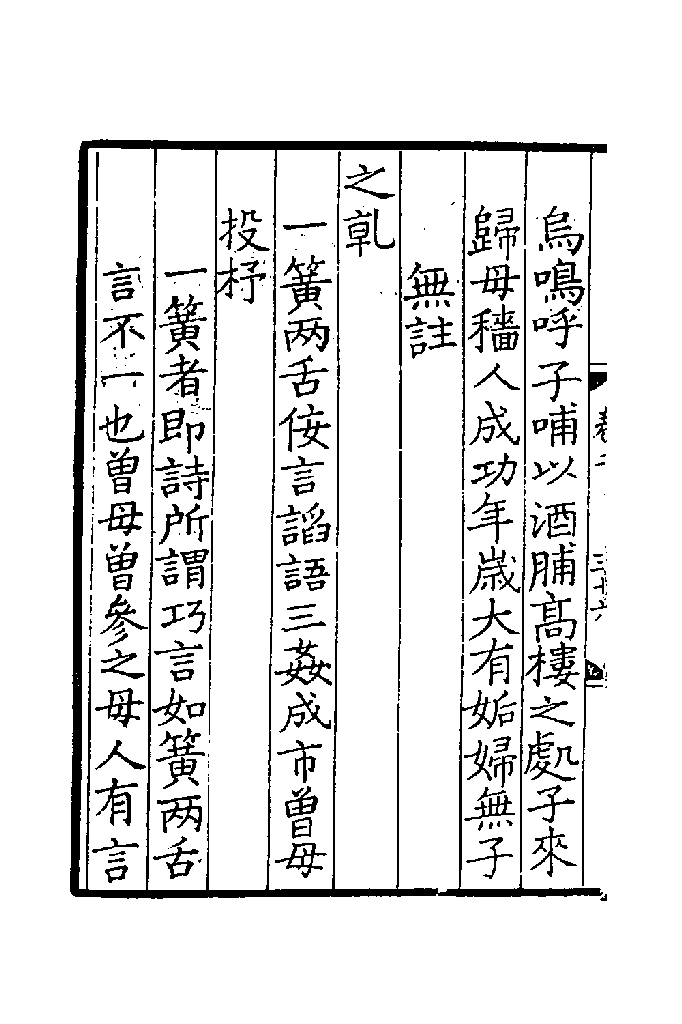 烏鳴呼子哺以酒脯髙樓之處子來
歸母穡人成功年歳大有姤婦無子
無註
之乹
一簧两舌佞言謟語三姦成市曾母
投杼
一簧者即詩所謂巧言如簧两舌
言不一也曾母曾參之母人有言
三十六